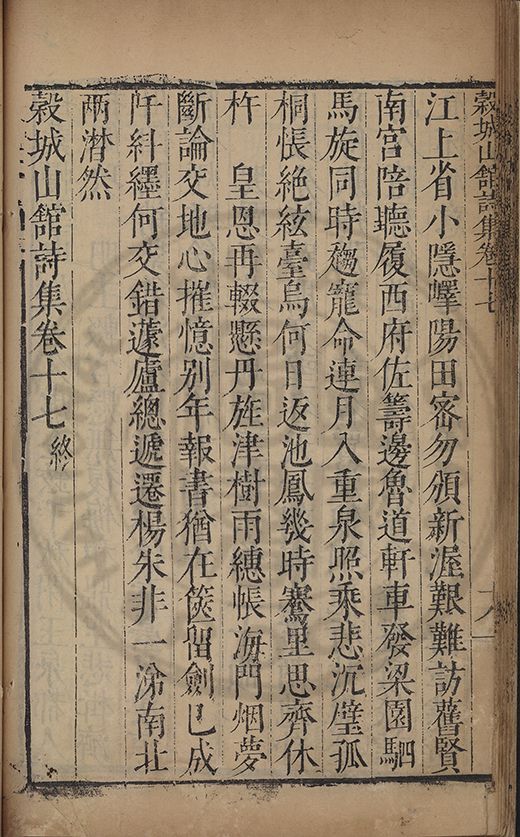 穀城山館詩集卷十七
江上省小隱嶧陽田密勿頒新渥艱難訪舊賢
南宮陪聽履西府佐籌邊魯道軒車發梁園駟
馬旋同時趨寵命連月入重泉照乘悲沉璧孤
桐悵絶絃臺烏何日返池鳳幾時騫里思齊休
杵　皇恩再輟懸丹旌津樹雨繐帳海門烟夢
斷論交地心摧憶別年報書猶在篋留劍已成
阡糾纆何交錯蘧廬總遞遷楊朱非一涕南北
兩潸然
穀城山館詩集卷十七 終